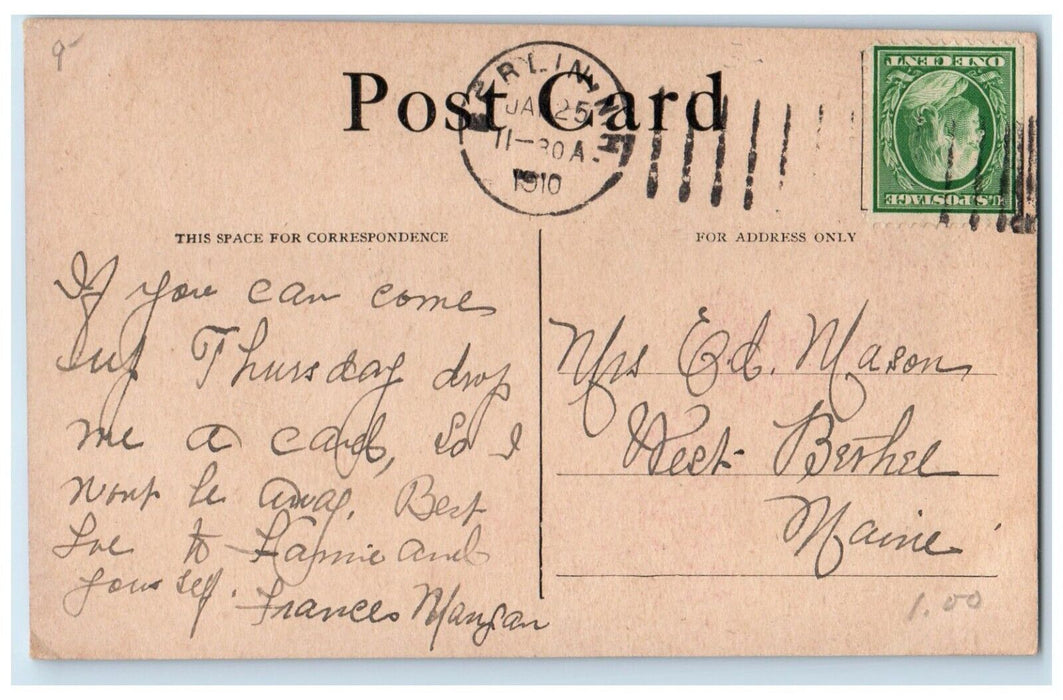 9-
Post Card
BERLIN, N.H.
JAN 25
11-30 A.
1910
ONE CENT
U.S. POSTAGE
THIS SPACE FOR CORRESPONDENCE
If you can come
up Thursday drop
me a card, so I
wont be away. Best
Love to Fannie and
your self.
Frances Mangan
FOR ADDRESS ONLY
Mrs Ed. Mason
West Bethel
Maine
1.00